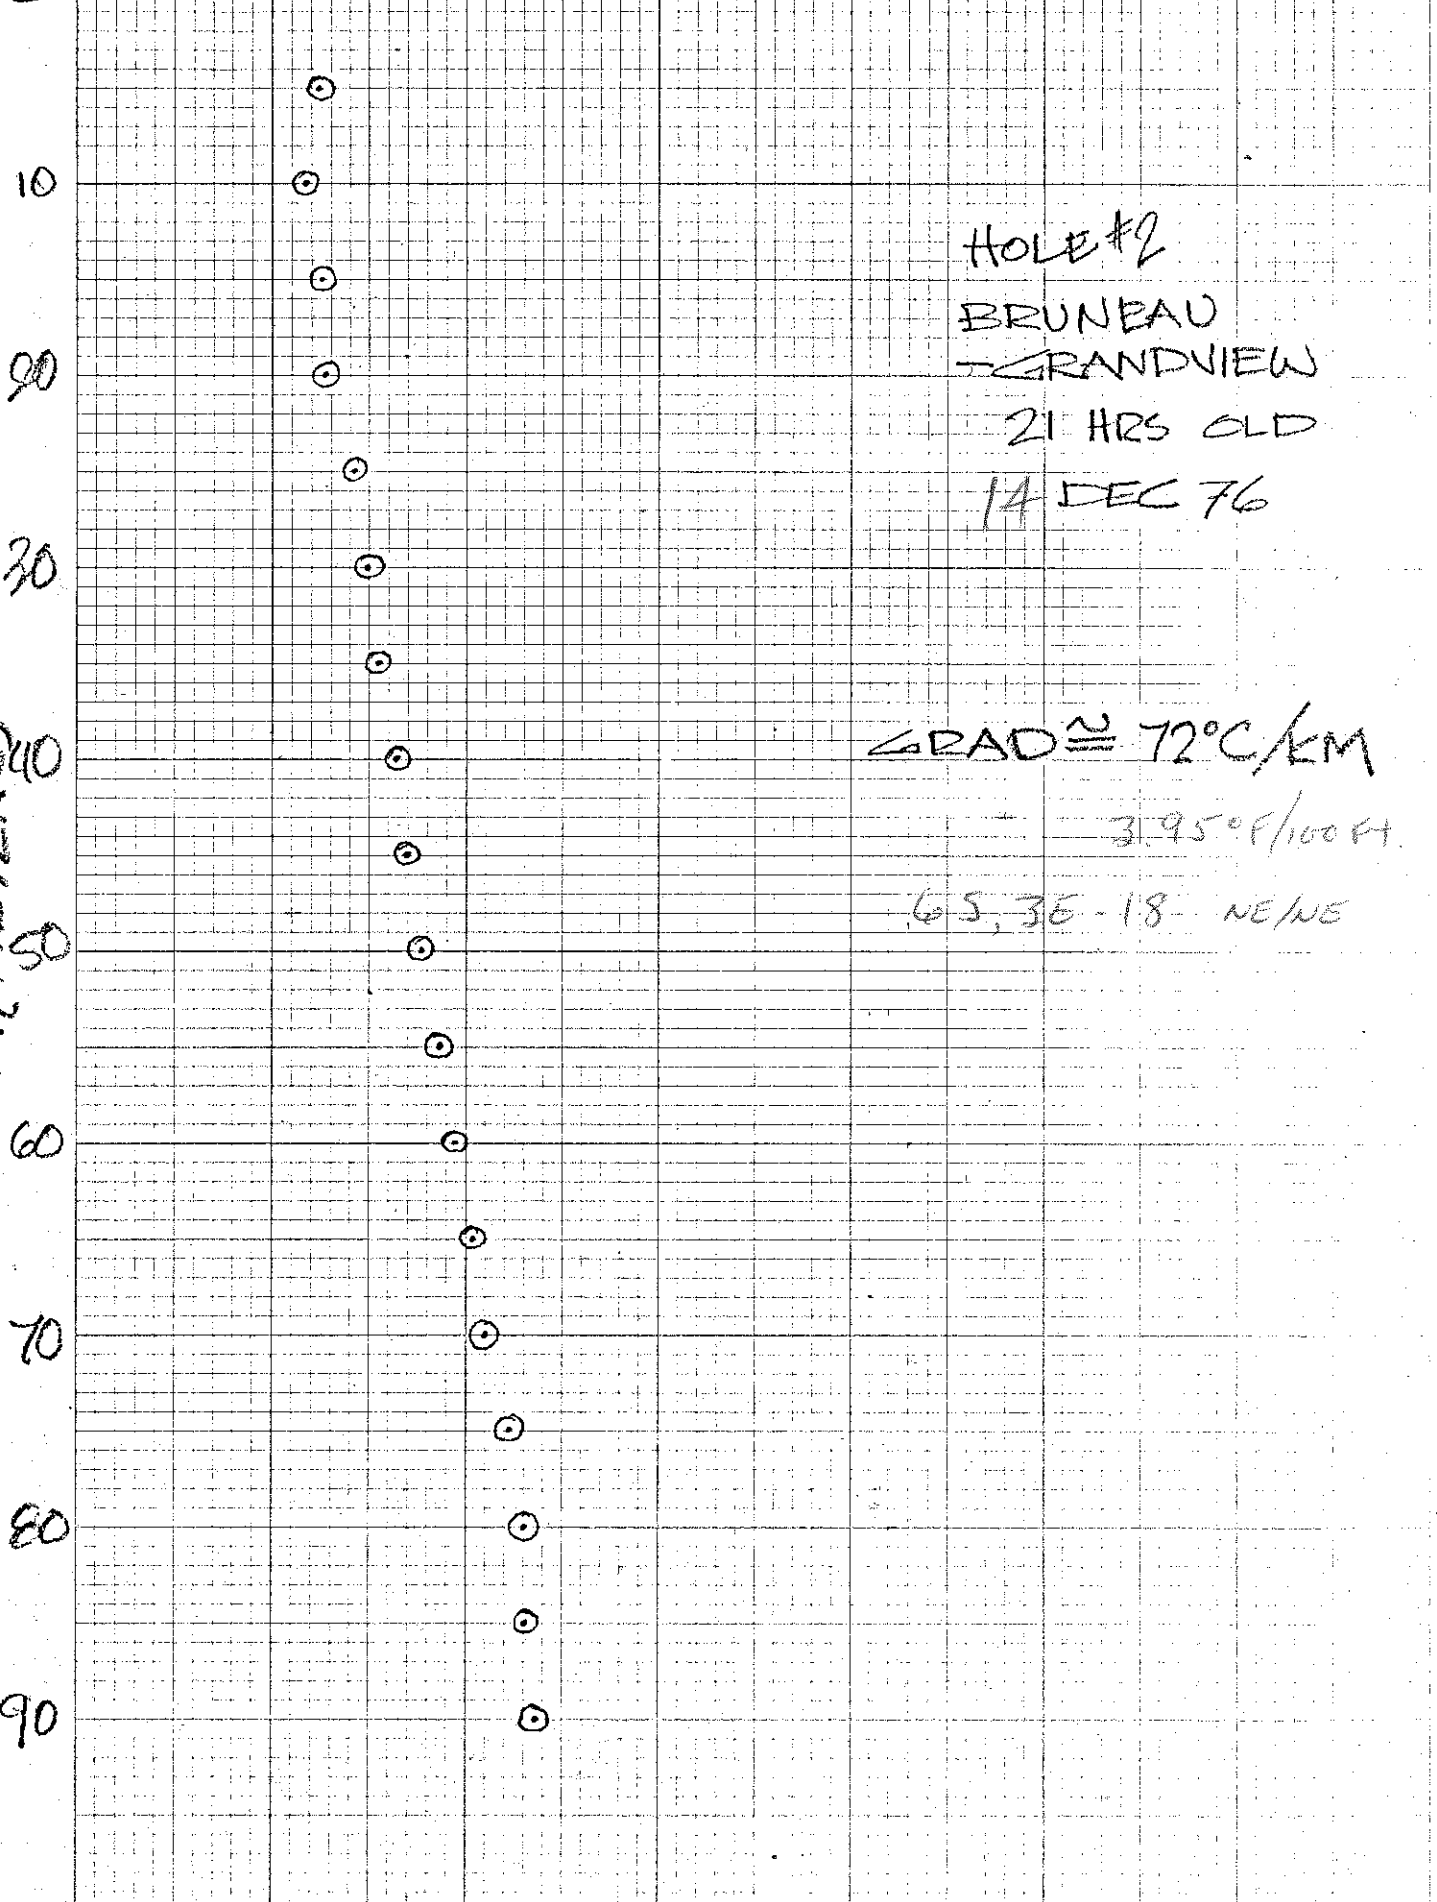 10
20
30
40
50
60
70
80
90
HOLE #2
BRUNEAU
-GRANDVIEW
21 HRS OLD
14 DEC 76
GRAD ≅ 72°C/KM
3.95°F/100 Ft.
6S, 3E - 18 NE/NE